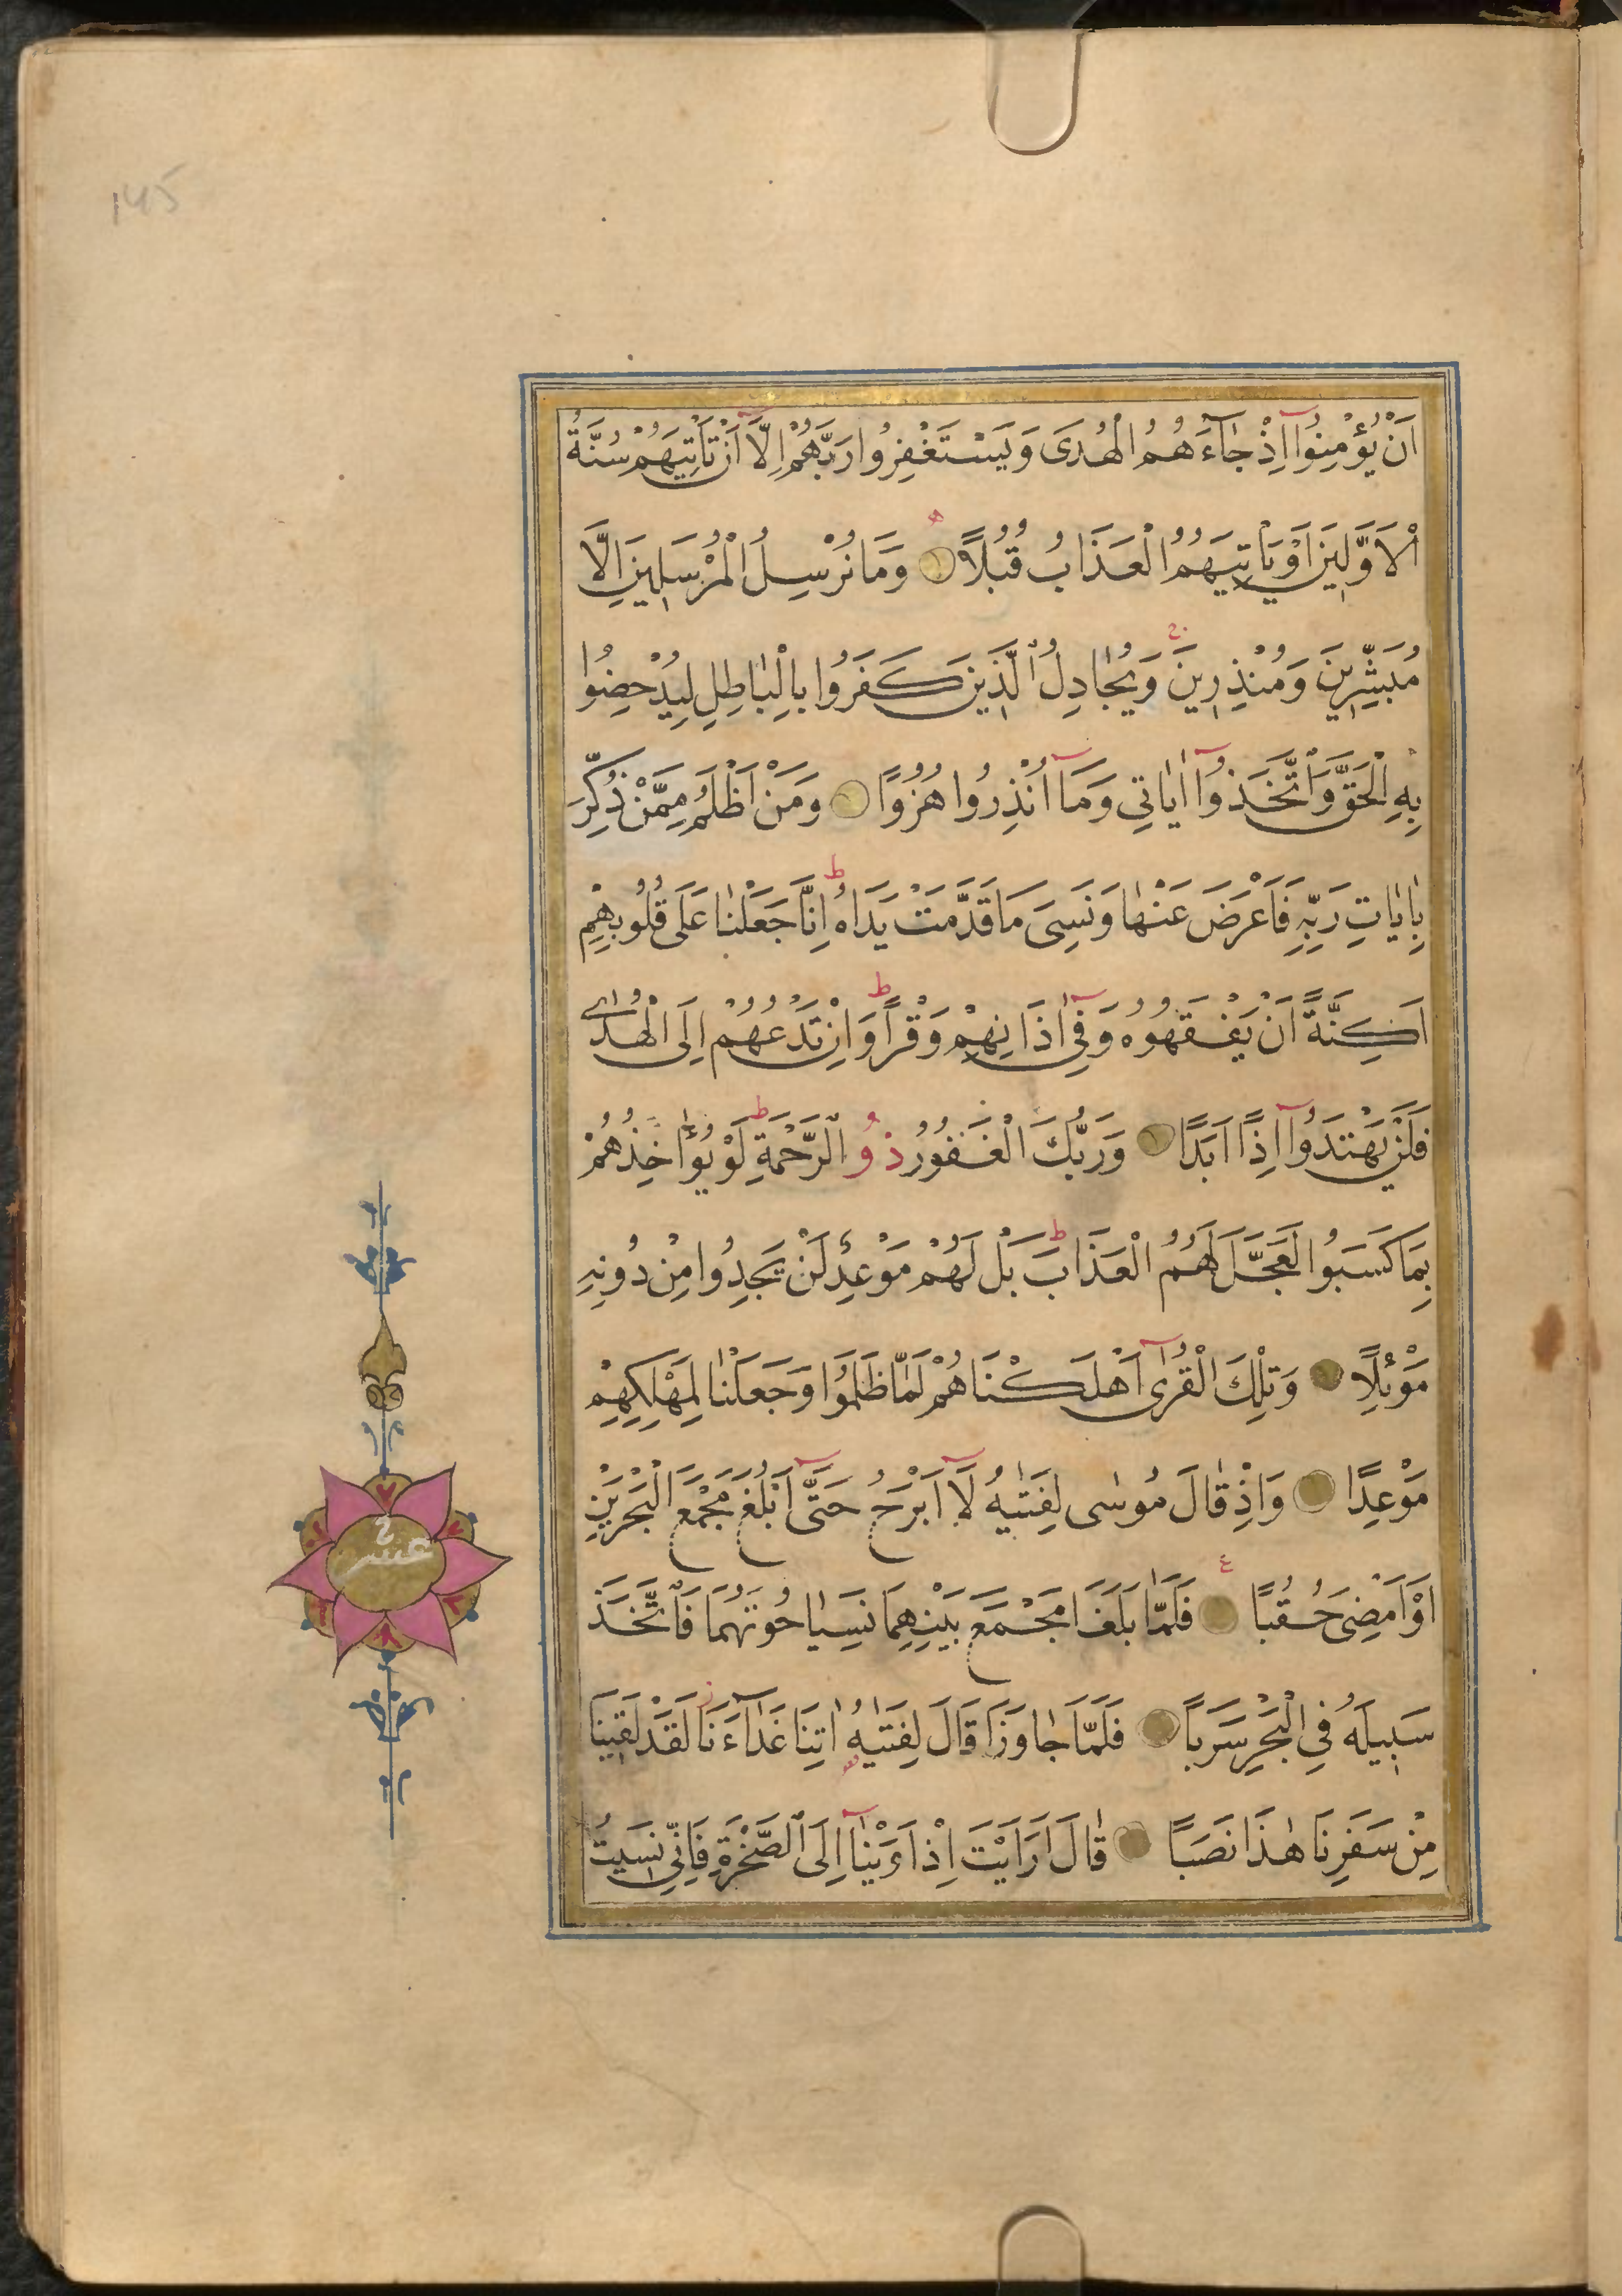 145
اَنْ يُؤْمِنُوٓا اِذْ جَآءَهُمُ الْهُدَى وَيَسْتَغْفِرُوا رَبَّهُمْ اِلَّٓا اَنْ تَأْتِيَهُمْ سُنَّةُ
الْاَوَّلِينَ اَوْ يَاْتِيَهُمُ الْعَذَابُ قُبُلًا وَمَا نُرْسِلُ الْمُرْسَلِينَ اِلَّا
مُبَشِّرِينَ وَمُنْذِرِينَ وَيُجَادِلُ الَّذِينَ كَفَرُوا بِالْبَاطِلِ لِيُدْحِضُوا
بِهِ الْحَقَّ وَاتَّخَذُوٓا اٰيَاتِي وَمَٓا اُنْذِرُوا هُزُوًا وَمَنْ اَظْلَمُ مِمَّنْ ذُكِّرَ
بِاٰيَاتِ رَبِّهِ فَاَعْرَضَ عَنْهَا وَنَسِيَ مَا قَدَّمَتْ يَدَاهُ ط اِنَّا جَعَلْنَا عَلَى قُلُوبِهِمْ
اَكِنَّةً اَنْ يَفْقَهُوهُ وَفِٓي اٰذَانِهِمْ وَقْرًا ط وَاِنْ تَدْعُهُمْ اِلَى الْهُدٰى
فَلَنْ يَهْتَدُوٓا اِذًا اَبَدًا وَرَبُّكَ الْغَفُورُ ذُو الرَّحْمَةِ ط لَوْ يُؤٰاخِذُهُمْ
بِمَا كَسَبُوا لَعَجَّلَ لَهُمُ الْعَذَابَ ط بَلْ لَهُمْ مَوْعِدٌ لَنْ يَجِدُوا مِنْ دُونِهِ
مَوْئِلًا وَتِلْكَ الْقُرٰٓى اَهْلَكْنَاهُمْ لَمَّا ظَلَمُوا وَجَعَلْنَا لِمَهْلِكِهِمْ
مَوْعِدًا وَاِذْ قَالَ مُوسٰى لِفَتٰيهُ لَٓا اَبْرَحُ حَتّٰٓى اَبْلُغَ مَجْمَعَ الْبَحْرَيْنِ
اَوْ اَمْضِيَ حُقُبًا فَلَمَّا بَلَغَا مَجْمَعَ بَيْنِهِمَا نَسِيَا حُوتَهُمَا فَاتَّخَذَ
سَبِيلَهُ فِي الْبَحْرِ سَرَبًا فَلَمَّا جَاوَزَا قَالَ لِفَتٰيهُ اٰتِنَا غَدَآءَنَا لَقَدْ لَقِينَا
مِنْ سَفَرِنَا هٰذَا نَصَبًا قَالَ اَرَاَيْتَ اِذْ اَوَيْنَٓا اِلَى الصَّخْرَةِ فَاِنِّي نَسِيتُ
عشر